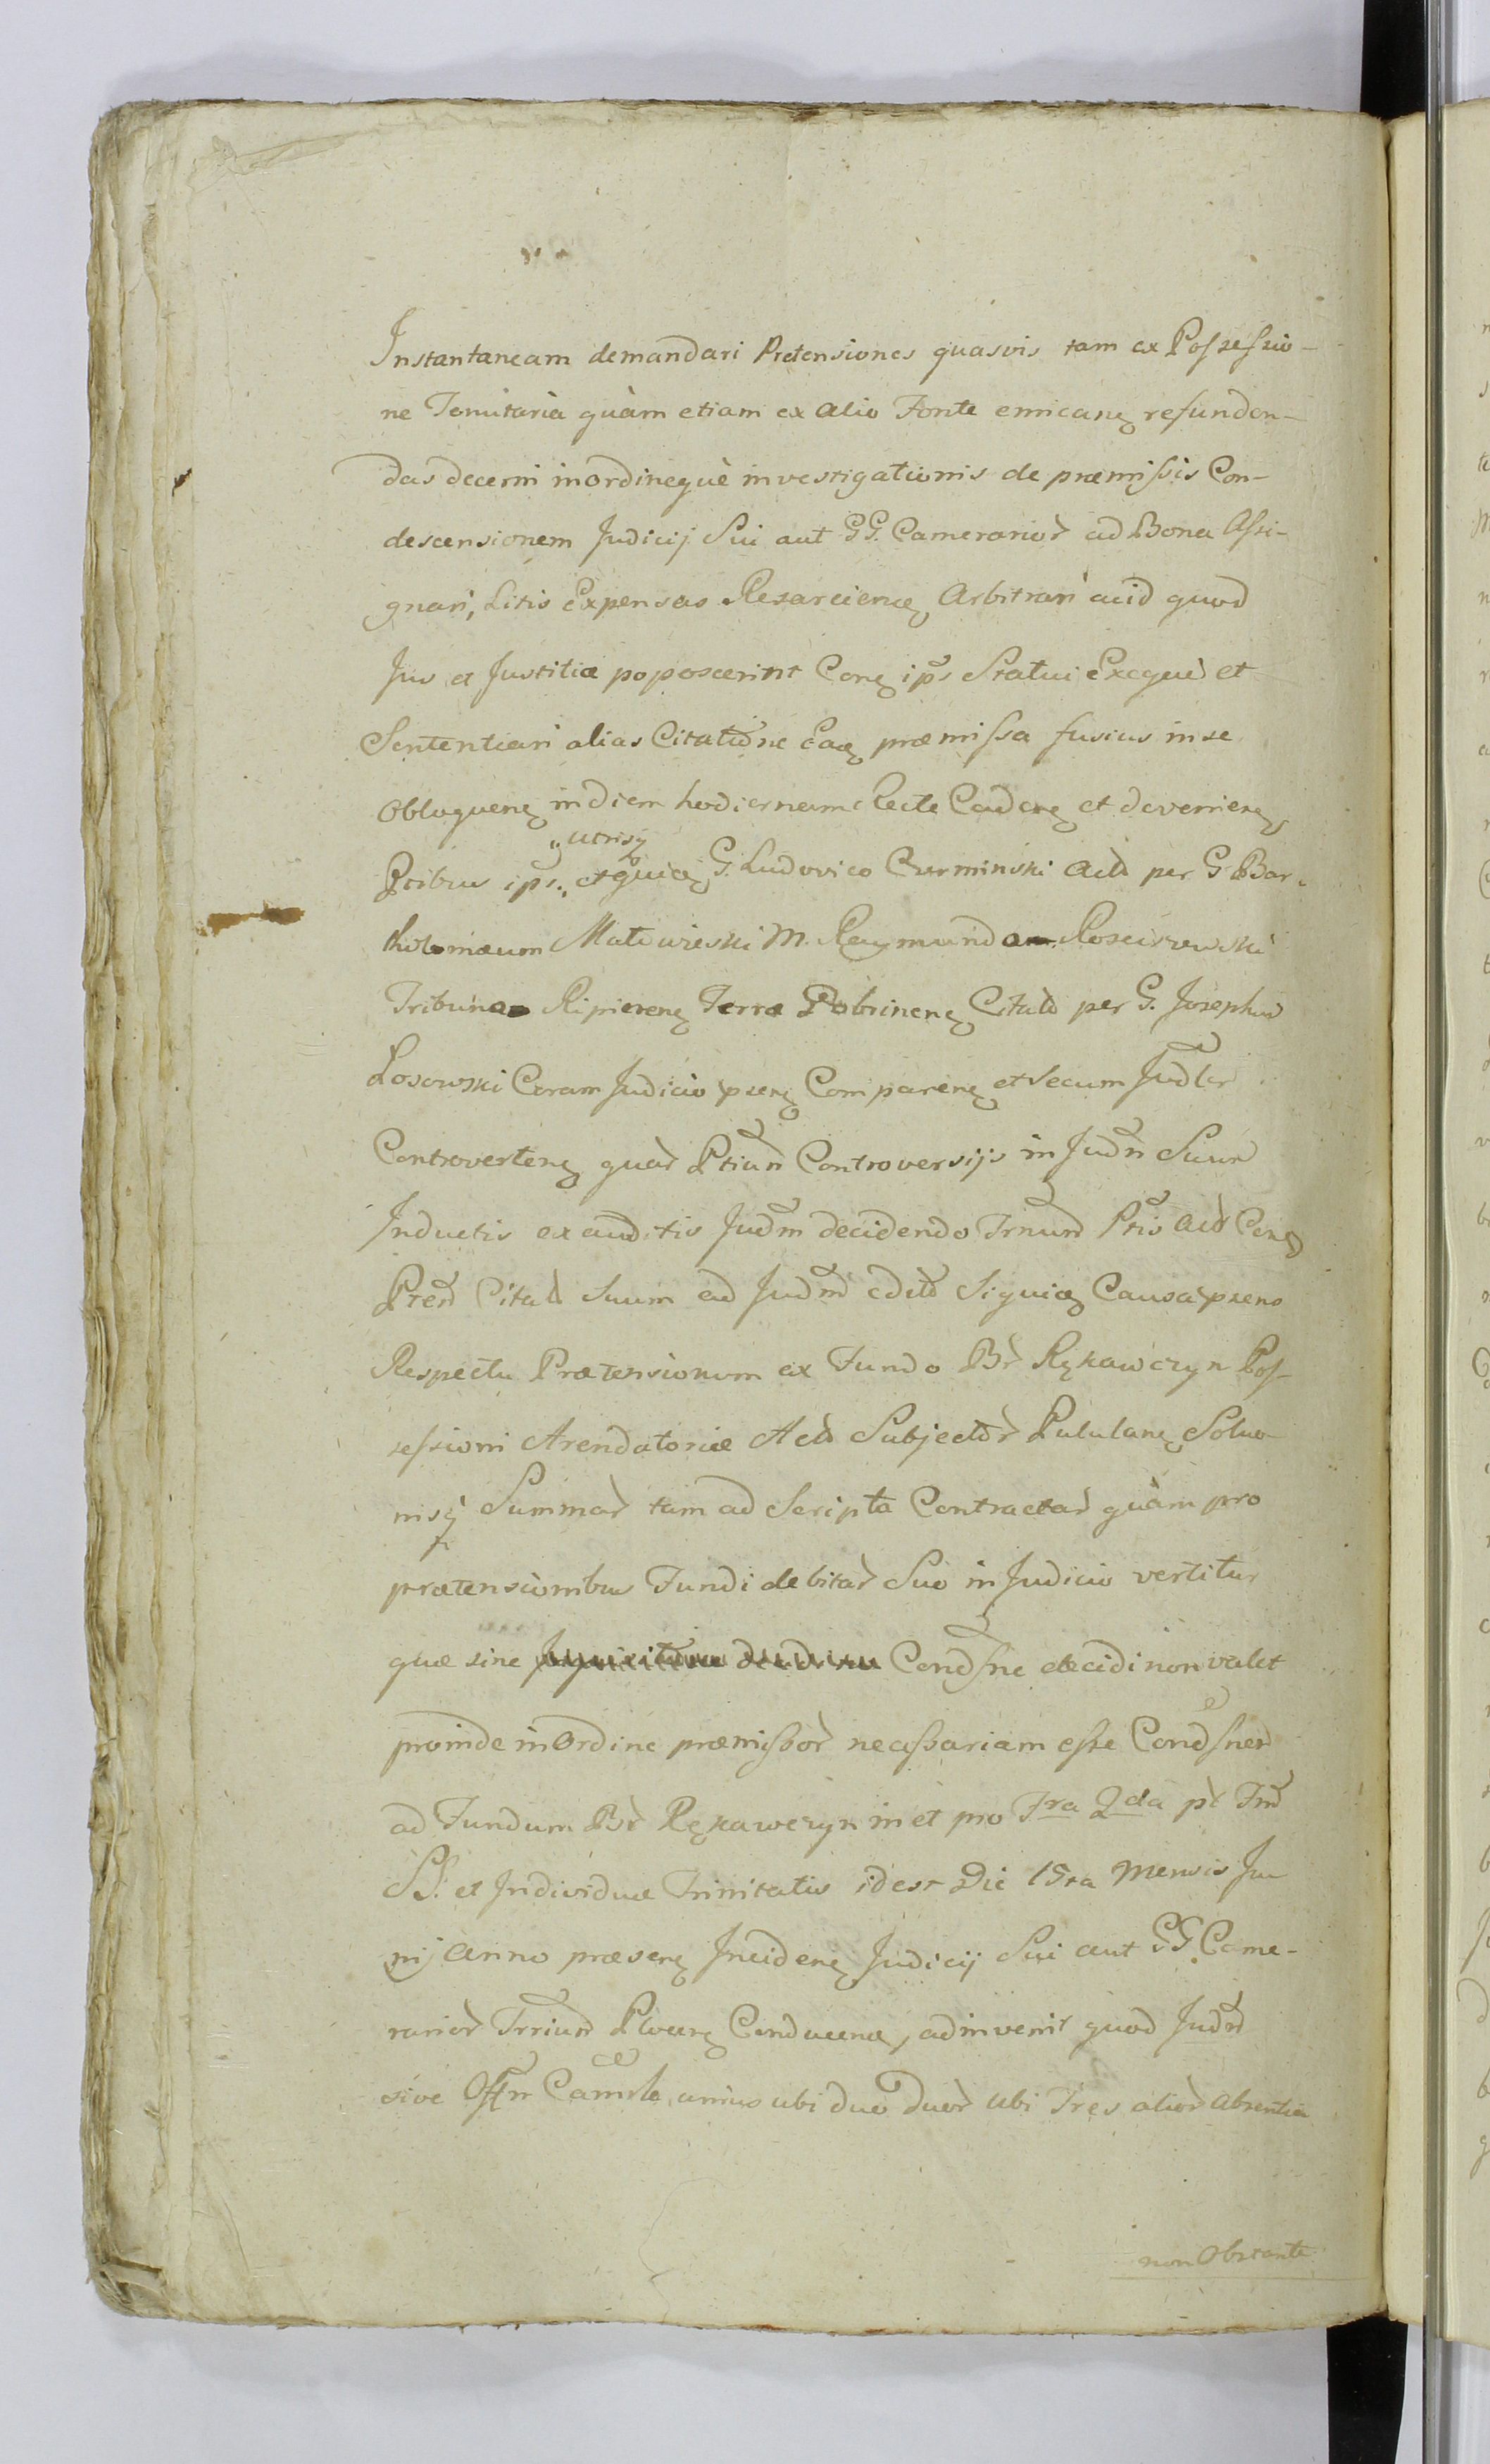 Instantaneam demandari Pretensiones quasvis tam ex Possessio-
ne Tenutaria quàm etiam ex alio Fonte emicanę refunden-
das decerni inordineque investigationis de præmissis Con-
descensionem Judicij Sui aut GG. Camerarior ad Bona Assi-
gnari, Litis Expensas Resarcienę Arbitrari acid quod
Jus et Justitia poposcerint Conę ips Statui Exeque et
Sententiari alias Citatione Eaę præmissa fusius in se
Obloquenę in diem hodiernam Recte Cadenę et devenienę
utrisq
Ptibus ips. et quidę G. Ludovico Czerminski Actt per G Bar-
tholomæum Matuszeski M. Raymundo Rosciszewski
Tribuno Ripienenę Terræ Dobrinenę Citatt per G. Josephum
Losowski Coram Judicio psenę Comparenę et Secum Judlr
Controvertenę quar Ptium Controversijs in Judm Suum
Inductis exauditis Judm decidendo Trnum Ptis Actt Conę
Pren Citatt Suum ad Judm editt Siquidę Causa psens
Respectu Prætensionum ex Fundo Br Rękawczyn Pos-
sessioni Arendatoriæ Actt Subjector Pululanę Solutio-
nisq Summar tam ad Scripta Contractar quàm pro
prætensionibus Fundi debitar Suo in Judicio vertitur
quæ sine Condsne decidi non valet
proinde in Ordine præmissor necessariam esse Condsnem
ad Fundum Br Rękawczyn in et pro Fra 2da pt Fm
SS. et Individuæ Trinitatis idest Die 15ta Mensis Ju
nij Anno præsenę Incidenę Judicij Sui aut GG Came-
rarior Trrium Plocenę Conducenę, adinvenit quod Judm
sive Offm Camrle unius ubi duo duor ubi Tres alior Absentia
non Obstante